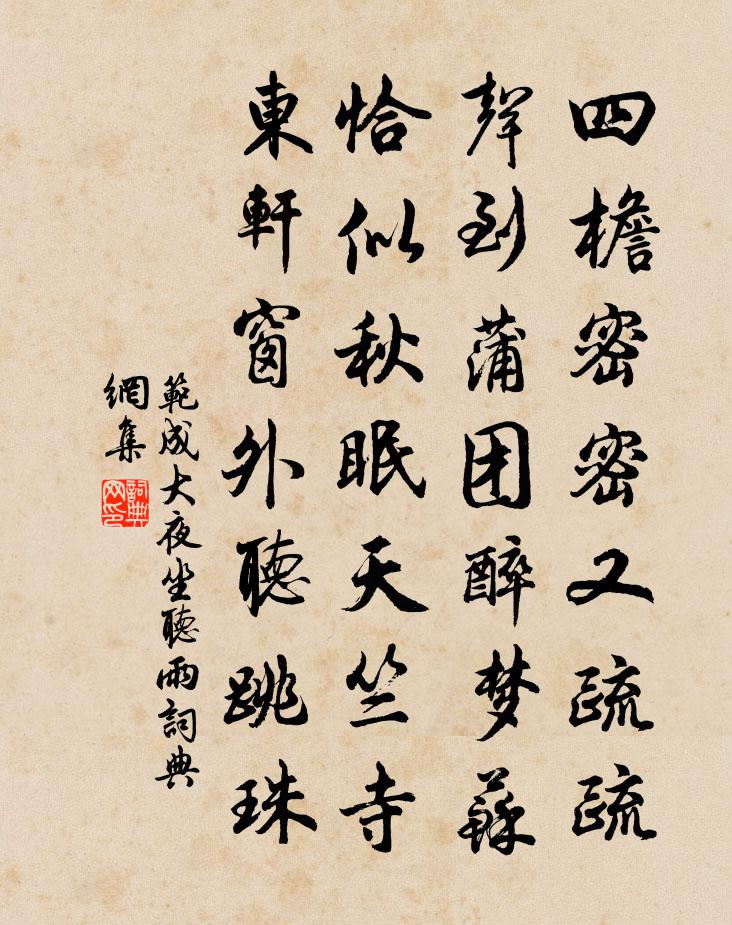 四檐密密又疏疏
聲到蒲团醉梦蘇
恰似秋眠天竺寺
東軒窗外聽跳珠
範成大夜坐聽雨詞典
網集
詞典
网印